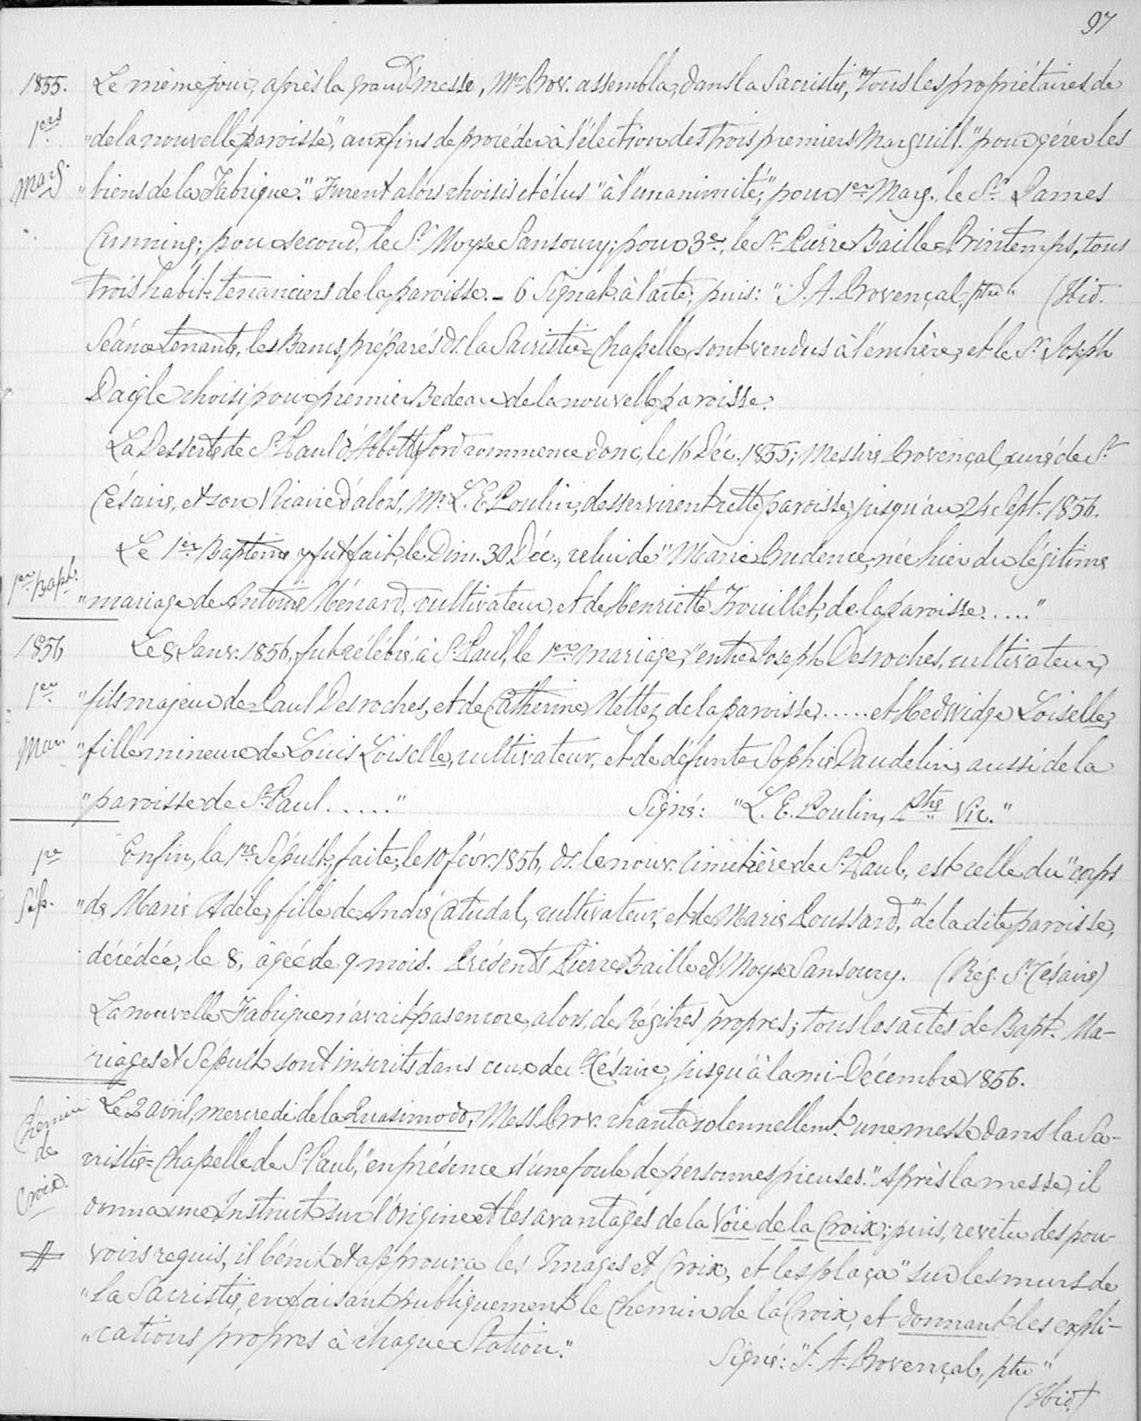 97
1855. Le même jour, après la grand'messe, Mr Prov. assembla, dans la Sacristie, "tous les propriétaires de
1ers "de la nouvelle paroisse", aux fins de procéder à l'élection des trois premiers Marguill. "pour gérer les
Marg. "biens de la Fabrique." Furent alors choisis et élus "à l'unanimité," pour 1er Marg. le Sr. James
Cunning; pour second, le Sr Moyse Sansoucy; pour 3e, le Sr Pierre Baille=Printemps, tous
trois habit. tenanciers de la paroisse. - 6 Signat. à l'acte; puis: "J. A. Provençal, ptre" (Ibid.
Séance tenante, les Bancs, préparés ds. la Sacristie=Chapelle, sont vendus à l'enchère; et le Sr. Joseph
Daigle choisi pour premier Bedeau de la nouvelle paroisse.
La Desserte de St Paul d'Abbottsford commence donc, le 16 Déc. 1855; Messire Provençal, curé de St
Césaire, et son Vicaire d'alors, Mr. L. E. Poulin, desservirent cette paroisse, jusqu'au 24 Sept. 1856.
Le 1er Baptême y fut fait, le Dim. 30 Déc., celui de "Marie Prudence, née hier du légitime
1er Bapt. "mariage de Antoine Ménard, cultivateur, et de Henriette Trouillet, de la paroisse....."
1856 Le 8 Janv. 1856, fut célébré, à St Paul, le 1er mariage, "entre Joseph Desroches, cultivateur,
1er "fils majeur de Paul Desroches, et de Catherine Mette, de la paroisse,..... et Hedwidge Loiselle,
Mar. "fille mineure de Louis Loiselle, cultivateur, et de défunte Sophie Daudelin, aussi de la
"paroisse de St Paul....." Signé: "L. E. Poulin, Ptre Vic."
1re Enfin, la 1re Sépult., faite, le 10 févr. 1856, ds. le nouv. Cimetière de St Paul, est celle du "corps
Sép. "de Marie Adèle, fille de André Catudal, cultivateur, et de Marie Poussard," de la dite paroisse,
décédée, le 8, âgée de 9 mois. Présents Pierre Baille et Moyse Sansoucy. (Rég. St Césaire)
La nouvelle Fabrique n'avait pas encore, alors, de Régitres propres; tous les actes de Bapt. Ma-
riages et Sépult. sont inscrits dans ceux de St Césaire, jusqu'à la mi-Décembre 1856.
Chemin de Croix. Le 2 avril, mercredi de la Quasimodo, Mess. Prov. chanta solennellemt. "une messe dans la Sa-
cristie=Chapelle de St Paul, "en présence d'une foule de personnes pieuses." Après la messe, il
donna une Instruct. sur l'origine et les avantages de la Voie de la Croix; puis, revêtu des pou-
# voirs requis, il bénit et approuva les Images et Croix, et les plaça "sur les murs de
"la Sacristie, en faisant publiquement le Chemin de la Croix, et donnant les expli-
"cations propres à chaque Station." Signé: "J. A. Provençal, ptre"
(Ibid.)